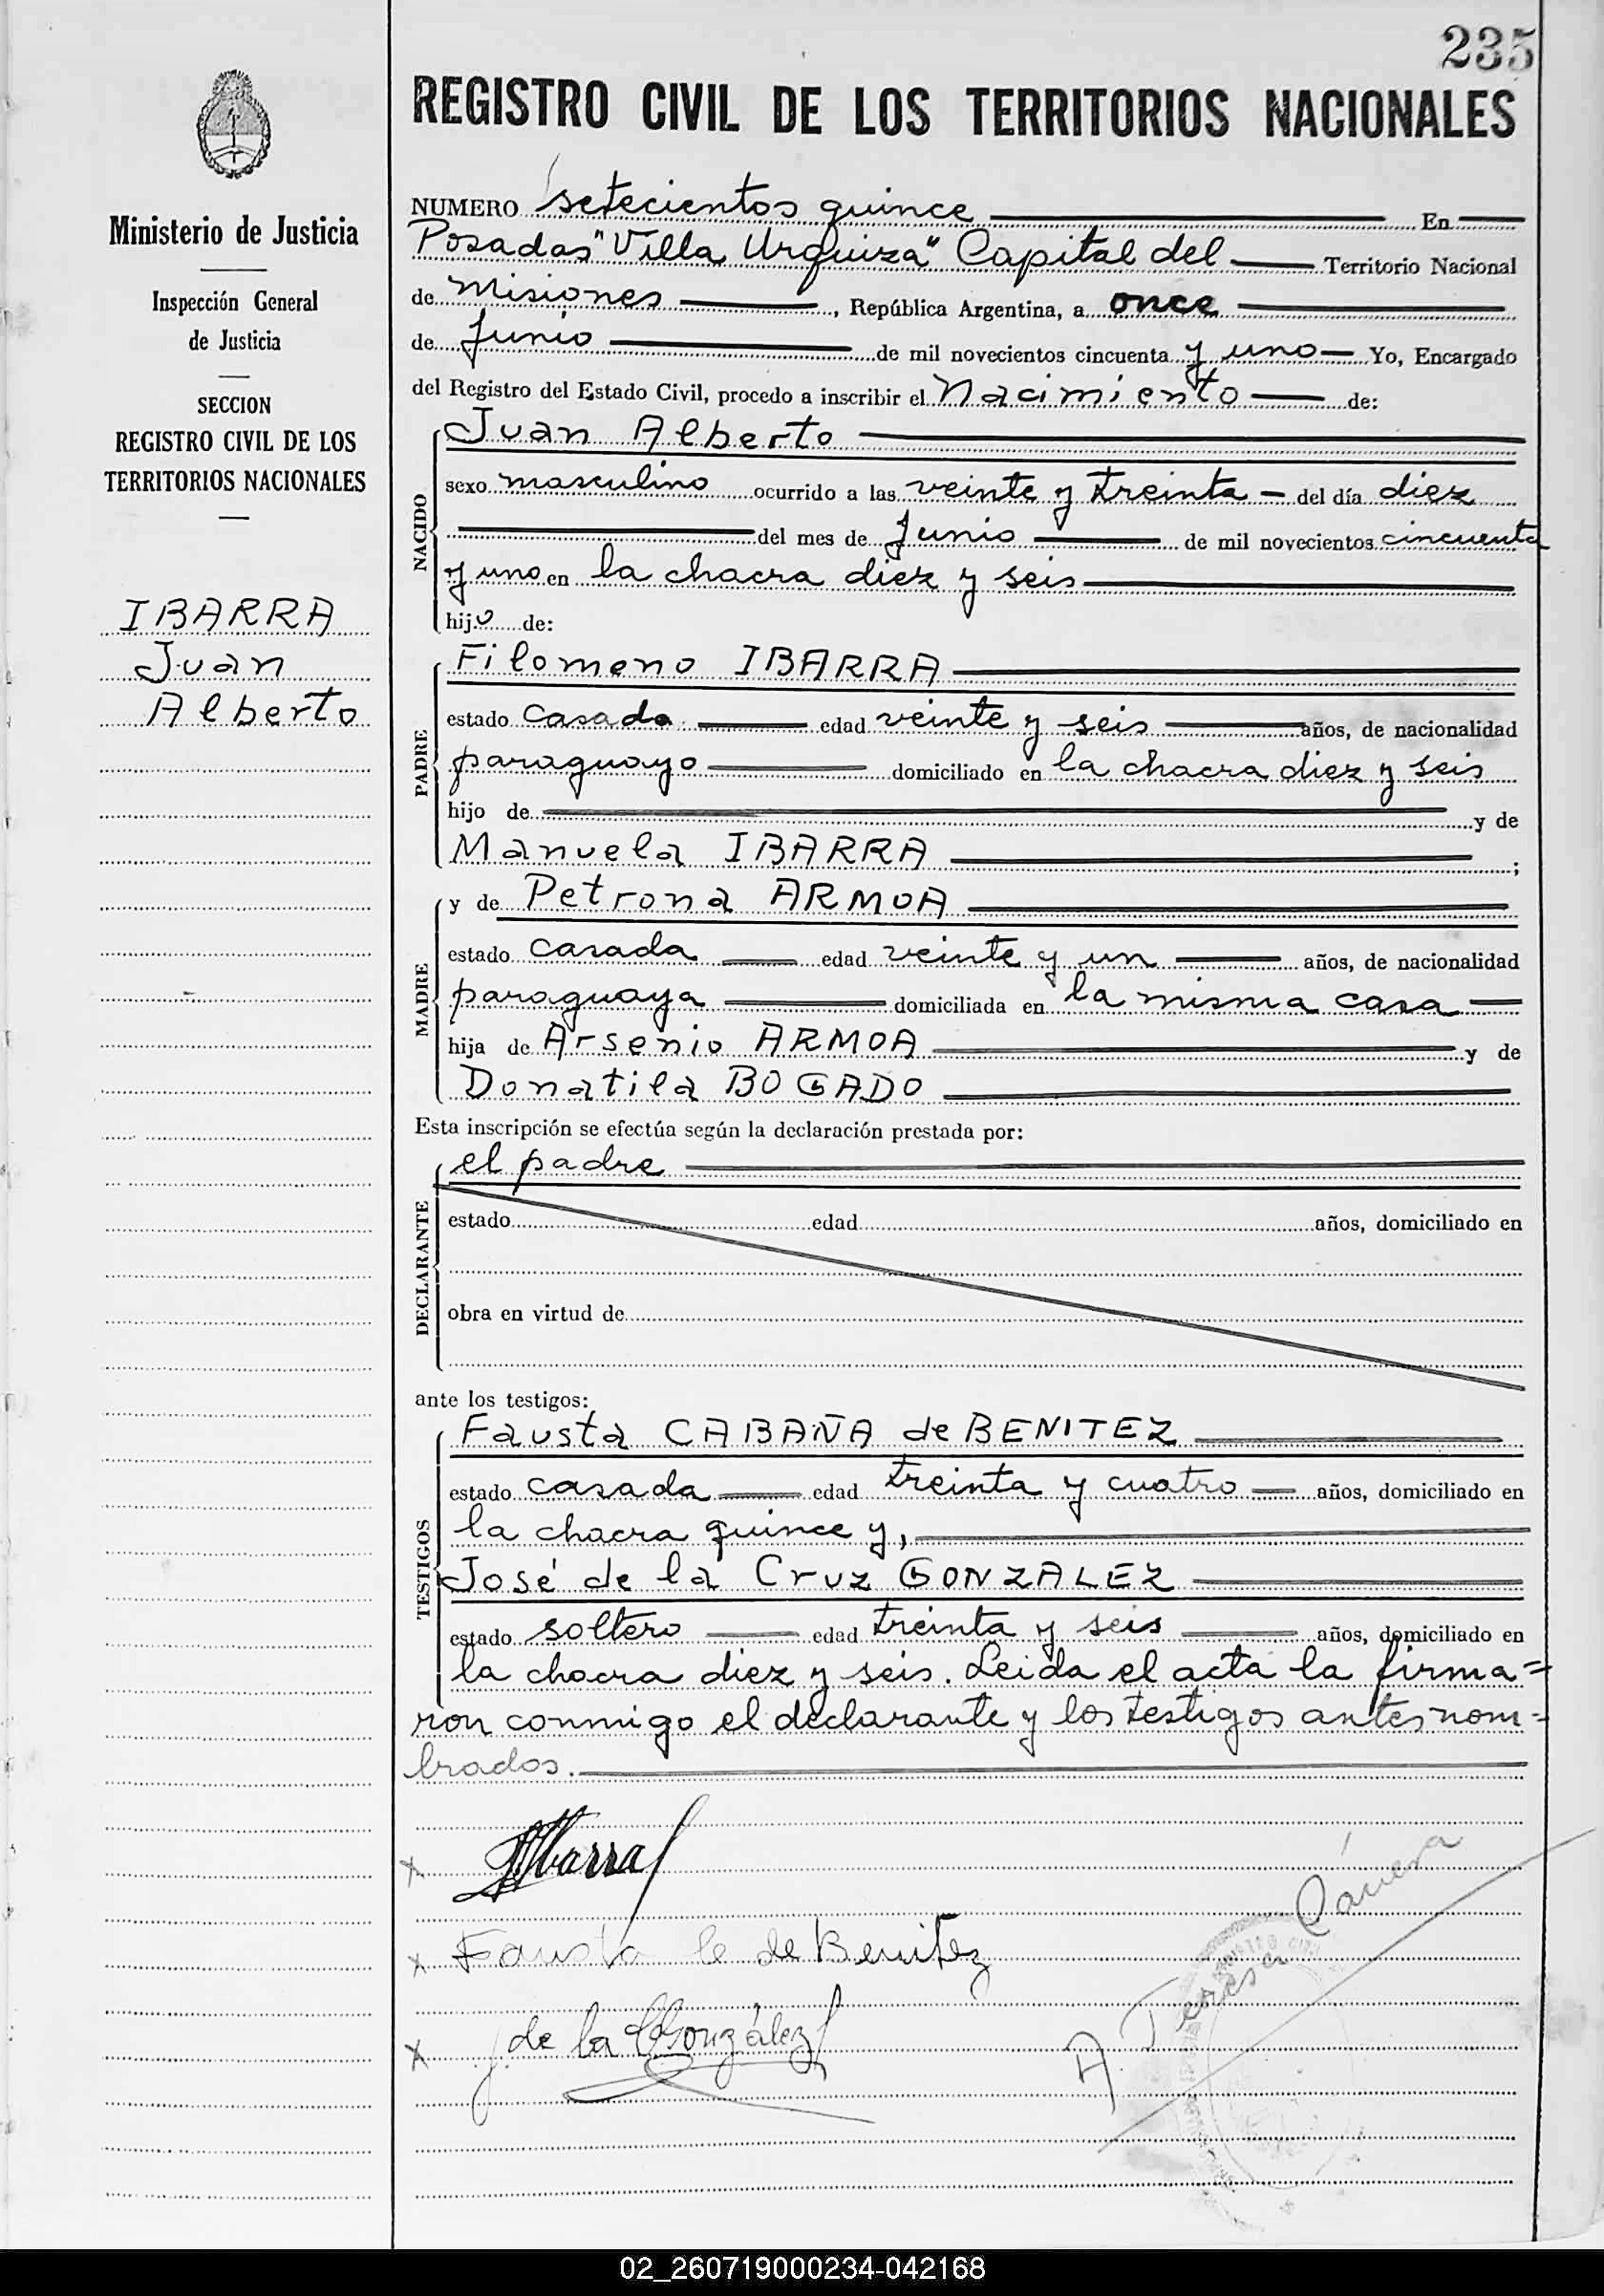 235
REGISTRO CIVIL DE LOS TERRITORIOS NACIONALES
Ministerio de Justicia
Inspección General
de Justicia
SECCION
REGISTRO CIVIL DE LOS
TERRITORIOS NACIONALES
IBARRA
Juan
Alberto
NUMERO setecientos quince En
Posadas "Villa Urquiza" Capital del Territorio Nacional
de Misiones, República Argentina, a once
de Junio de mil novecientos cincuenta y uno Yo, Encargado
del Registro del Estado Civil, procedo a inscribir el Nacimiento de:
NACIDO
Juan Alberto
sexo masculino ocurrido a las veinte y treinta del día diez
del mes de Junio de mil novecientos cincuenta
y uno en la chacra diez y seis
hijo de:
PADRE
Filomeno IBARRA
estado casado edad veinte y seis años, de nacionalidad
paraguayo domiciliado en la chacra diez y seis
hijo de y de
Manuela IBARRA ;
MADRE
y de Petrona ARMOA
estado casada edad veinte y un años, de nacionalidad
paraguaya domiciliada en la misma casa
hija de Arsenio ARMOA y de
Donatila BOGADO
Esta inscripción se efectúa según la declaración prestada por:
DECLARANTE
el padre
estado edad años, domiciliado en
obra en virtud de
ante los testigos:
TESTIGOS
Fausta CABAÑA de BENITEZ
estado casada edad treinta y cuatro años, domiciliado en
la chacra quince y,
José de la Cruz GONZALEZ
estado soltero edad treinta y seis años, domiciliado en
la chacra diez y seis. Leida el acta la firma=
ron conmigo el declarante y los testigos antes nom=
brados.
x Ibarra
x Fausta C de Benitez
x J. de la C González
A. Teresa
02_260719000234-042168